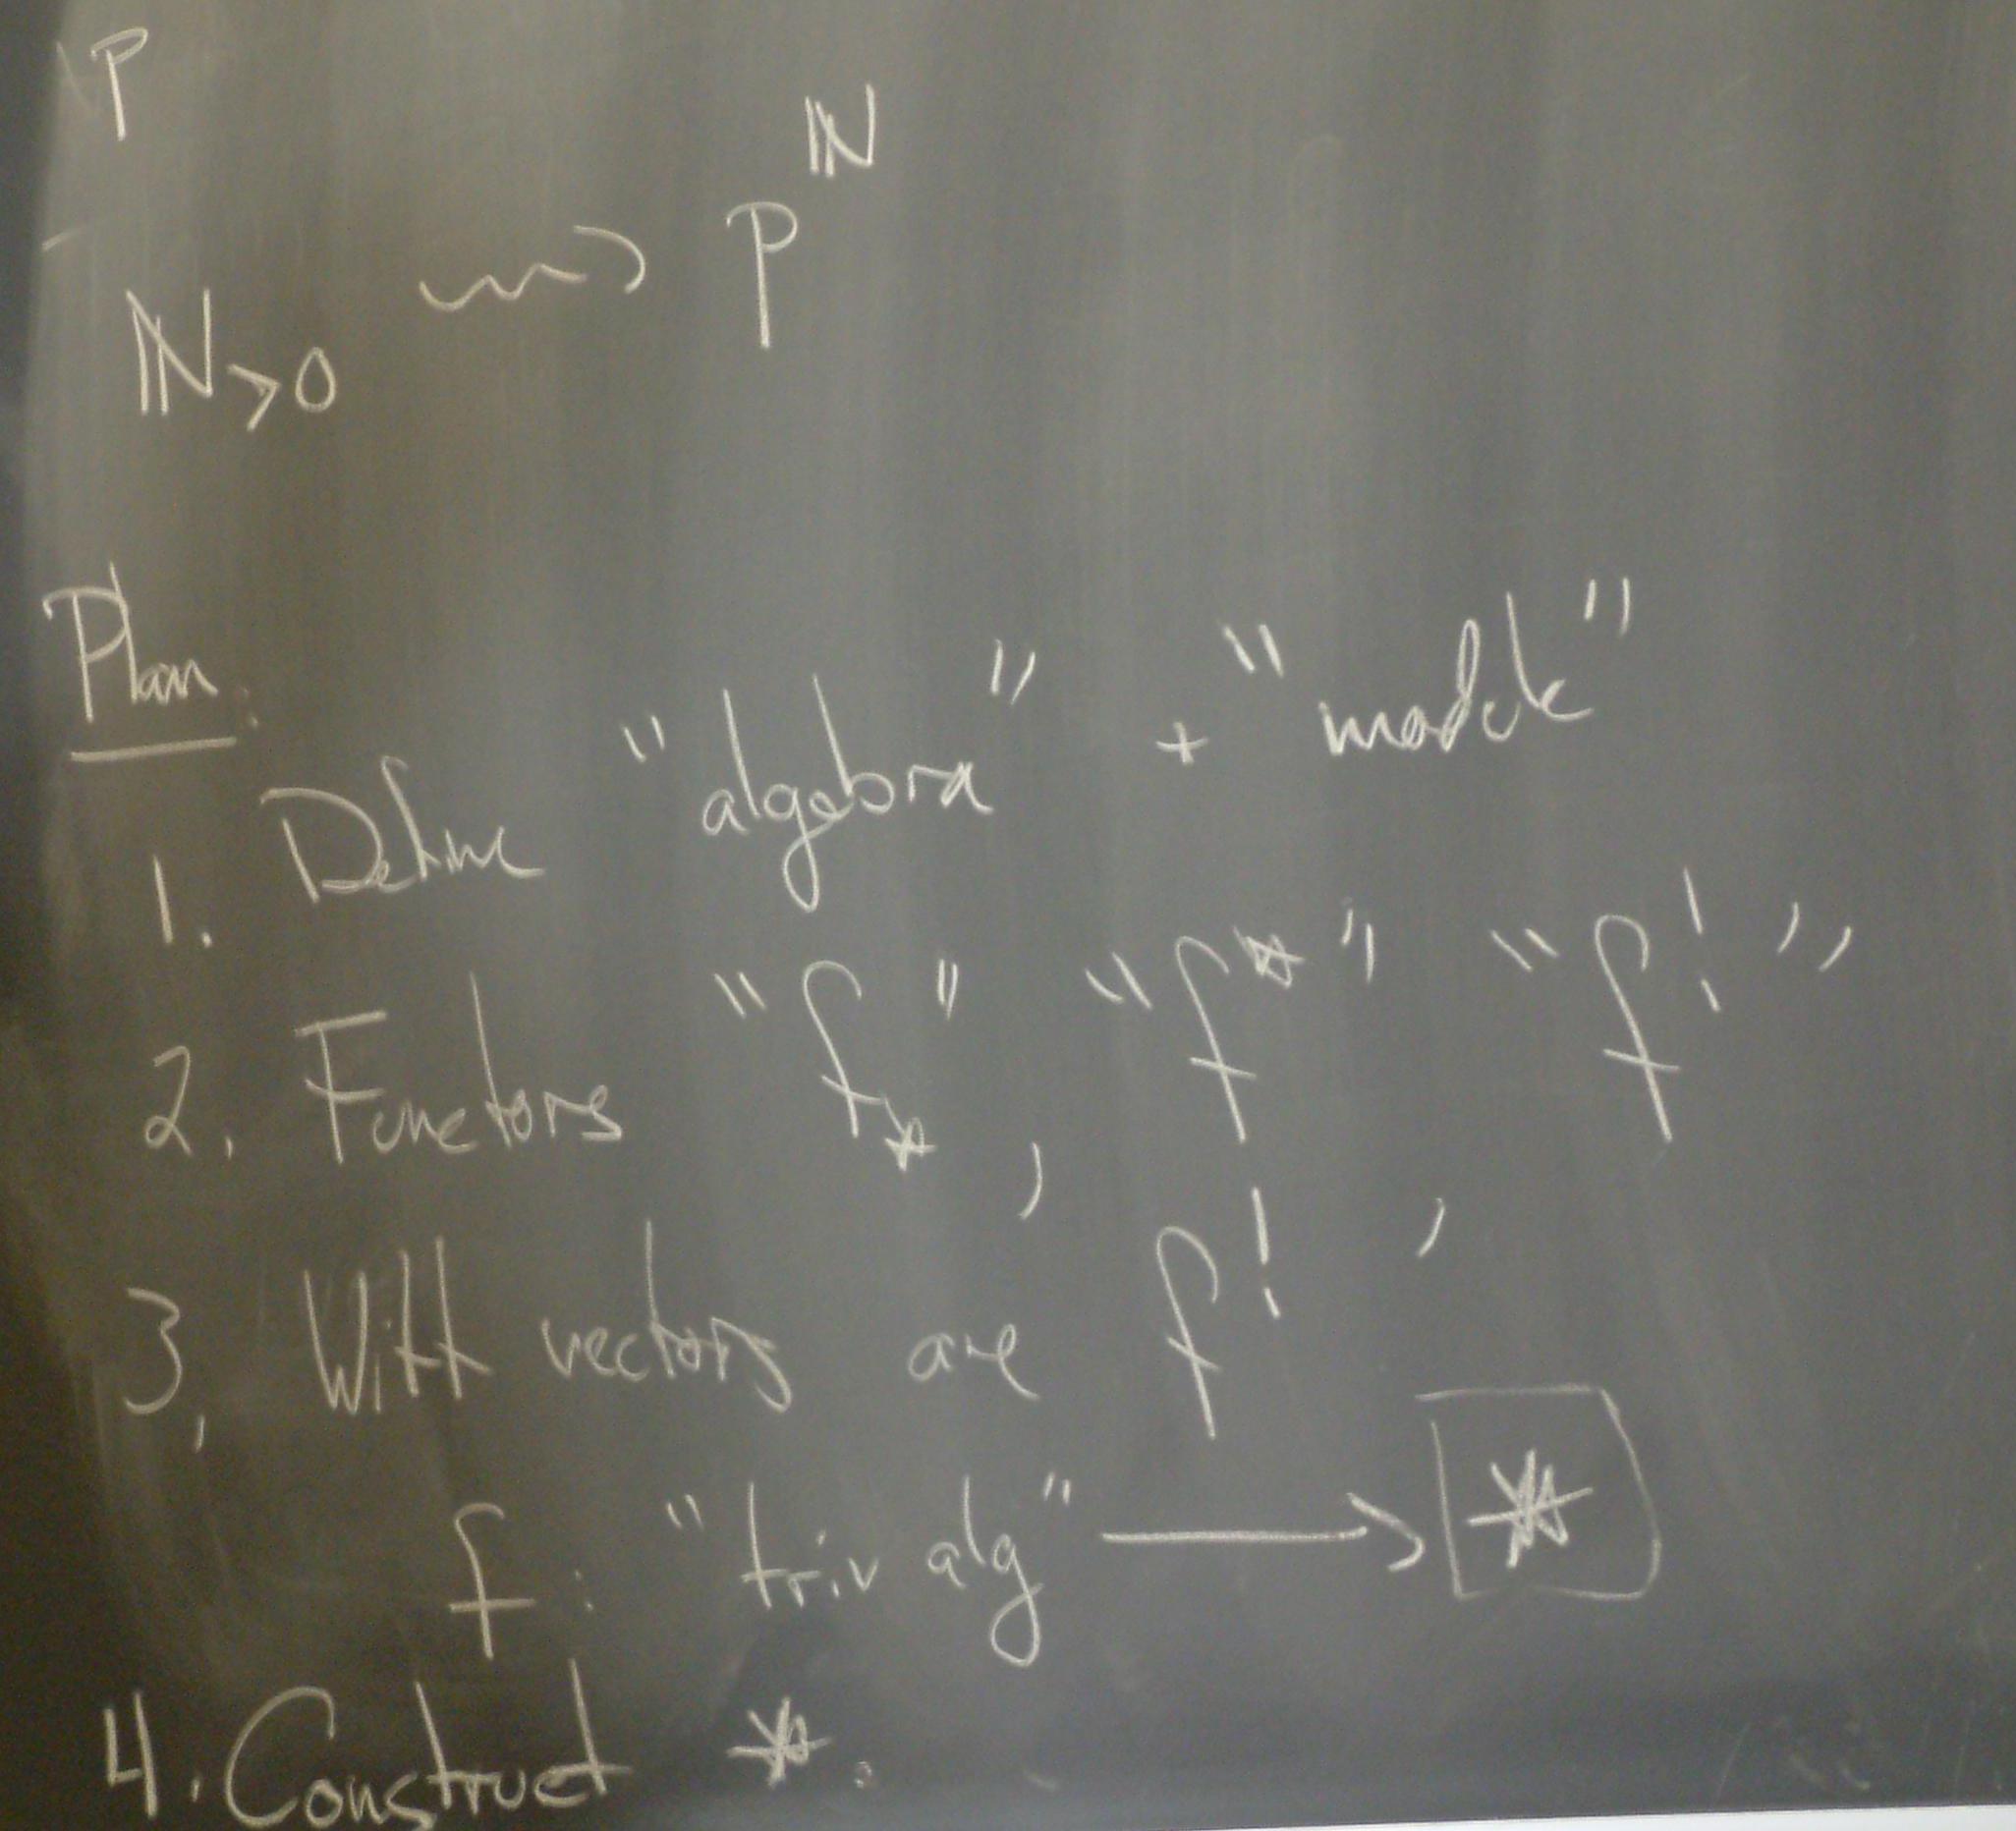 P
ℕ>0 ⇝ P^ℕ
Plan:
1. Define "algebra" + "module"
2. Functors "f_*", "f^*" "f^!"
3, Witt vectors are f^! ,
f: "triv alg" ⟶ *
4. Construct *.